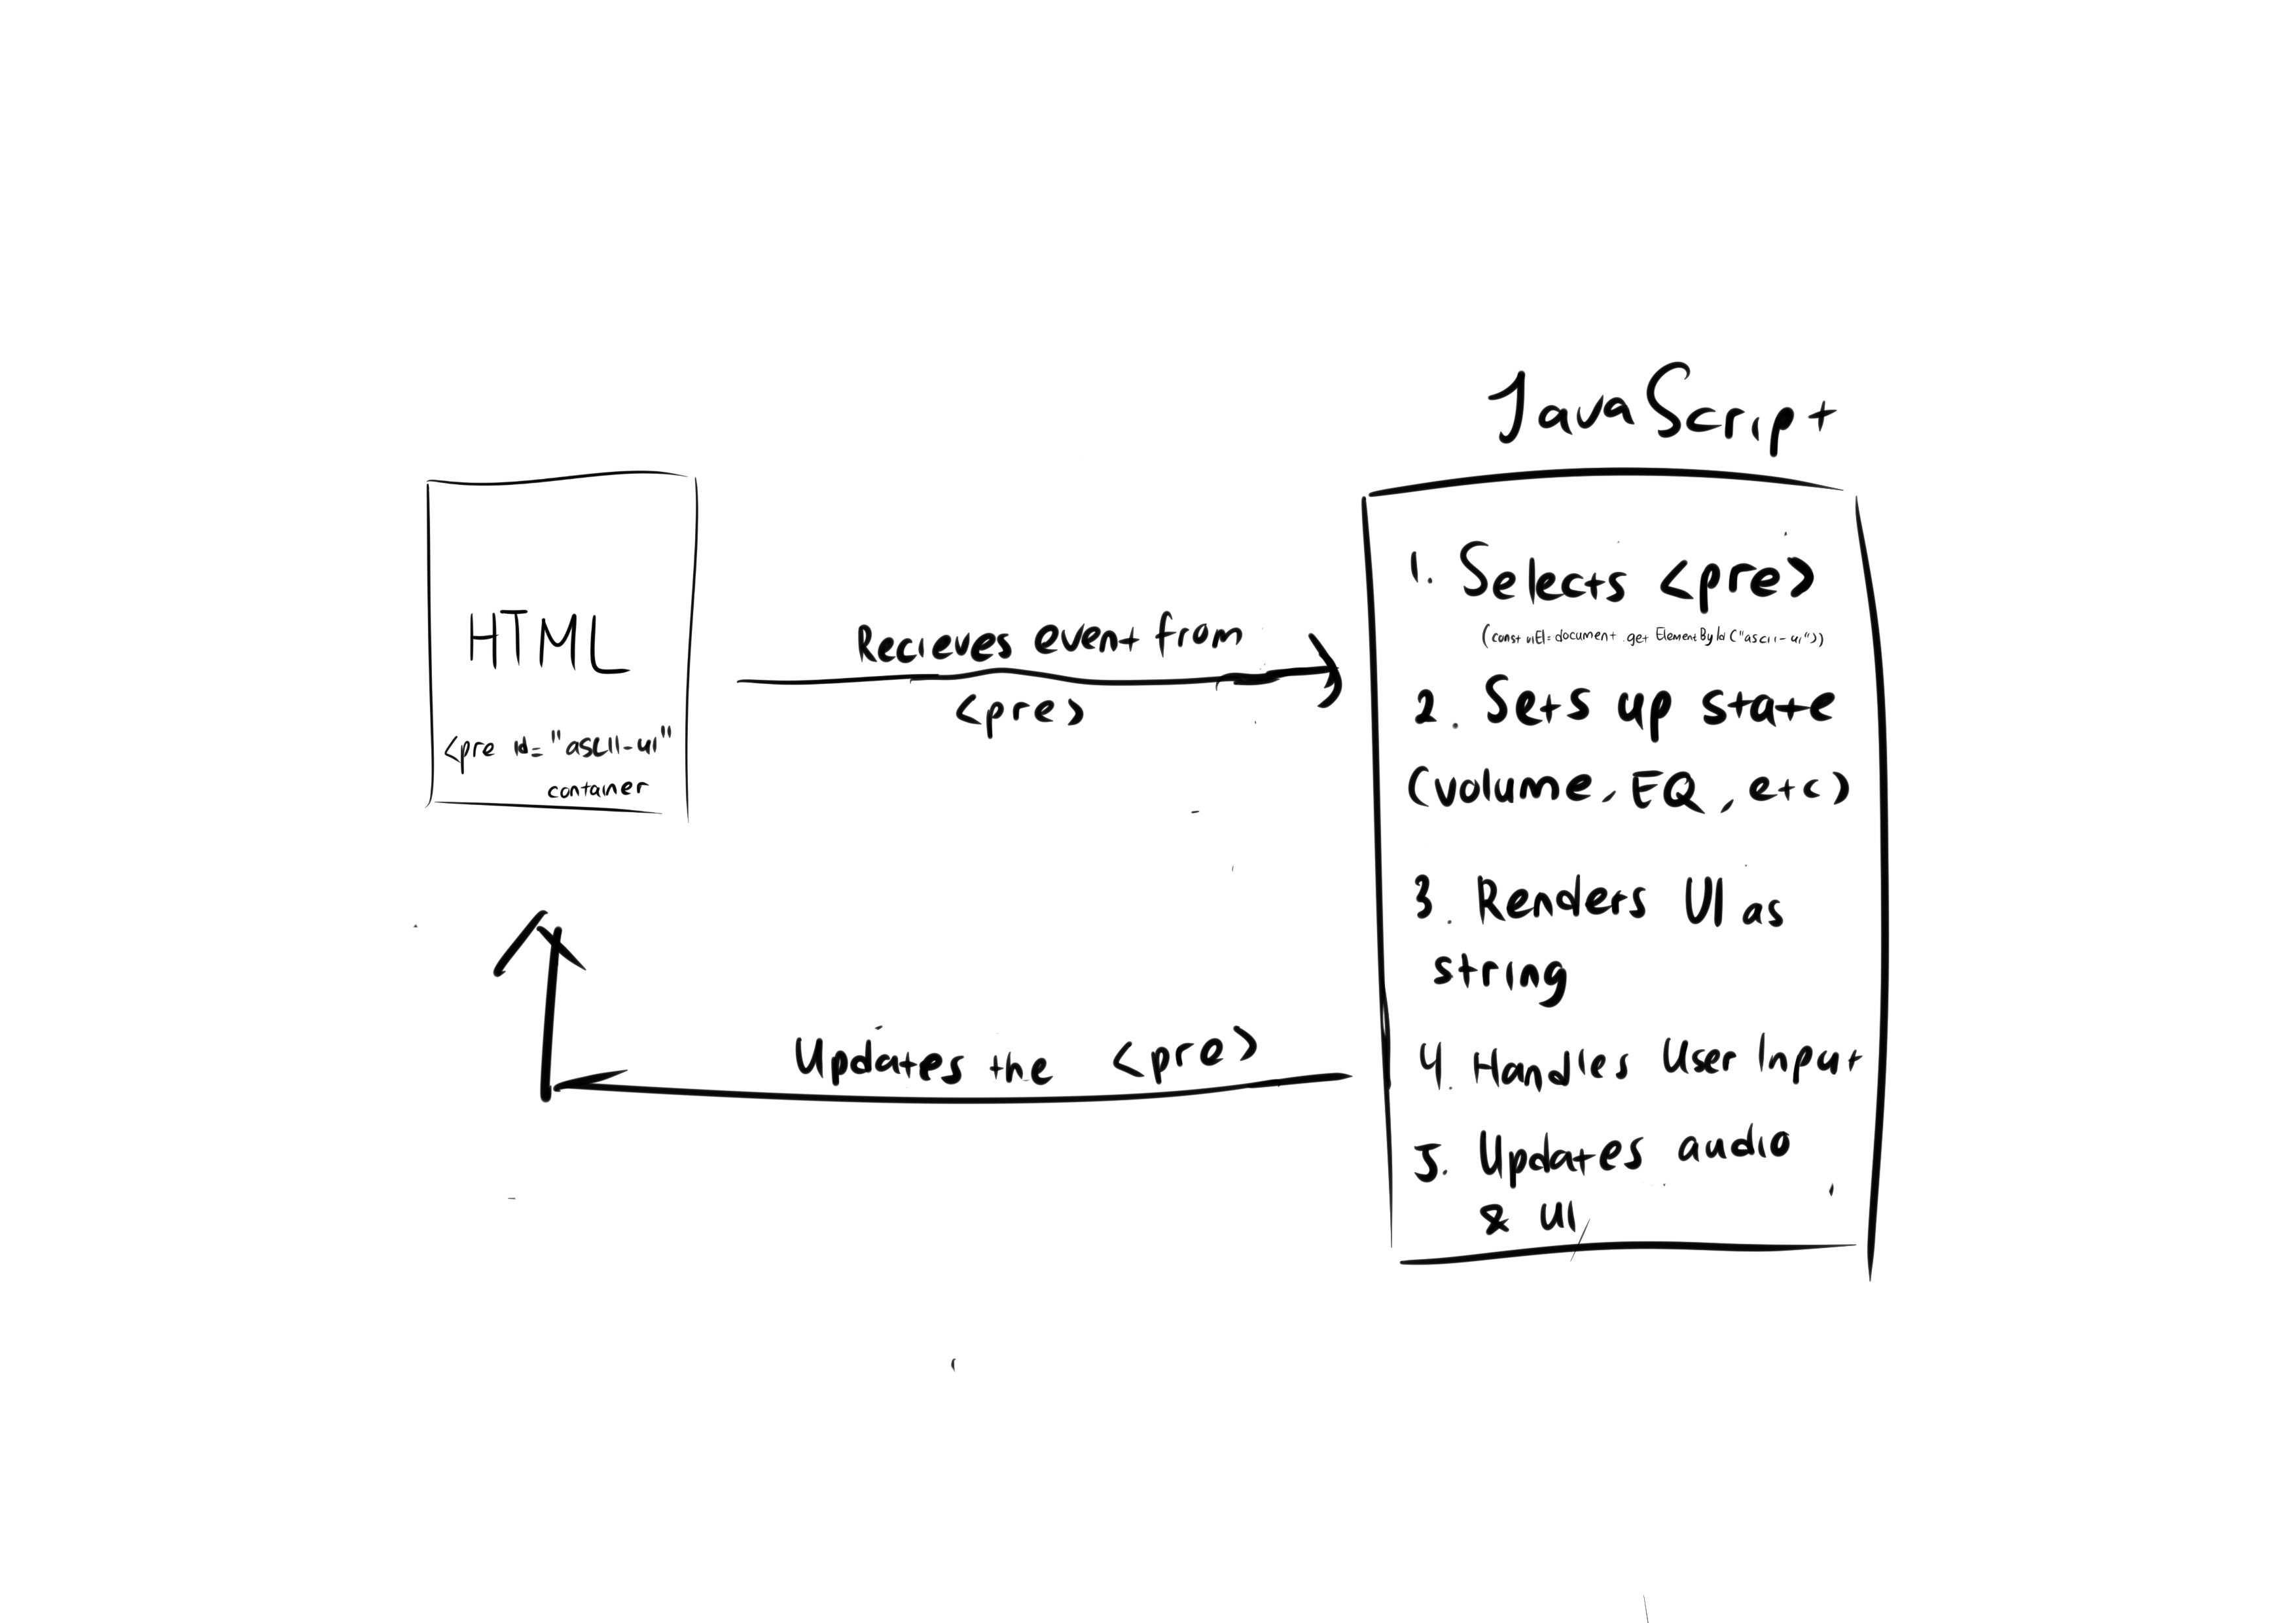 JavaScript
HTML
<pre id="ascii-ui"
container
Recieves event from
<pre>
1. Selects <pre>
(const uiEl=document.getElementById("ascii-ui"))
2. Sets up state
(volume, EQ, etc)
3. Renders UI as
string
4. Handles User Input
5. Updates audio
& UI
Updates the <pre>